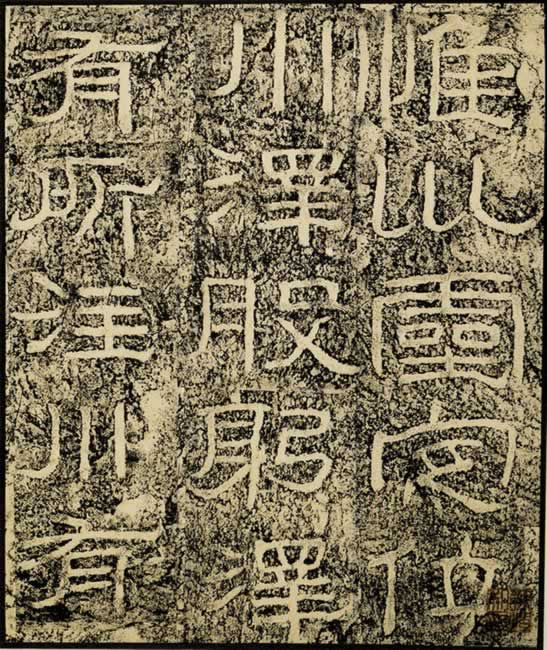 惟巛靈定位
川澤股躬澤
有所注川有